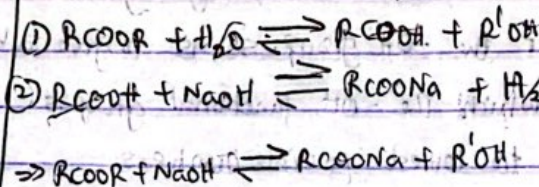 ① RCOOR + H₂O ⇌ RCOOH. + R'OH
② RCOOH + NaOH ⇌ RCOONa + H₂
⇒ RCOOR + NaOH ⇌ RCOONa + R'OH